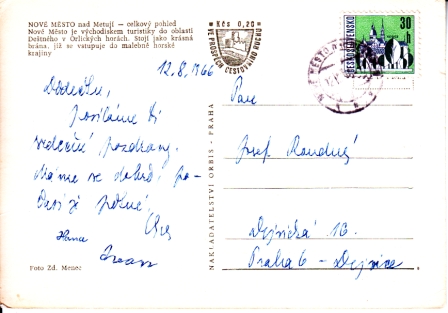 NOVÉ MĚSTO nad Metují — celkový pohled
Nové Město je východiskem turistiky do oblasti
Deštného v Orlických horách. Stojí jako krásná
brána, jíž se vstupuje do malebné horské
krajiny
Kčs 0,20
VE PROSPĚCH CESTOVNÍHO RUCHU
30 h
ČESKOSLOVENSKO
12.8.1966
Dědečku,
posíláme Ti
srdečné pozdravy.
Máme se dobře, po-
časí je pěkné.
Hana
Ivan
Pan
Josef
Dejvická 18
Praha 6 - Dejvice
NAKLADATELSTVÍ ORBIS - PRAHA
Foto Zd. Menec